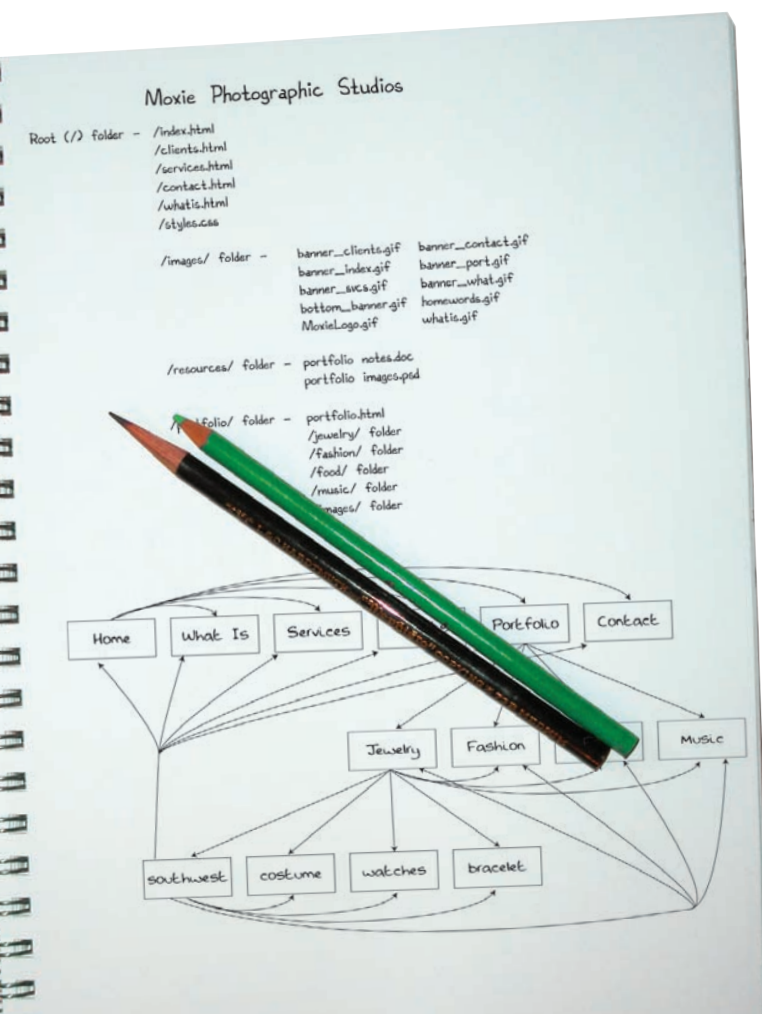 Moxie Photographic Studios
Root (/) folder - /index.html
/clients.html
/services.html
/contact.html
/whatis.html
/styles.css
/images/ folder - banner_clients.gif banner_contact.gif
banner_index.gif banner_port.gif
banner_svcs.gif banner_what.gif
bottom_banner.gif homewords.gif
MoxieLogo.gif whatis.gif
/resources/ folder - portfolio notes.doc
portfolio images.psd
folder - portfolio.html
/jewelry/ folder
/fashion/ folder
/food/ folder
/music/ folder
folder
Home What Is Services Portfolio Contact
Jewelry Fashion Music
southwest costume watches bracelet